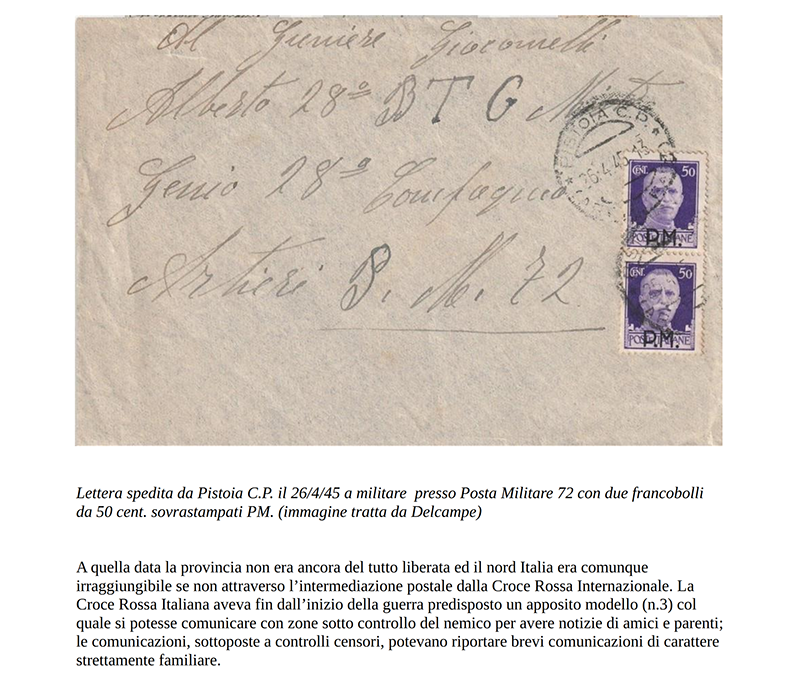 Al Geniere Giacomelli
Alberto 28° BTG Misto
Genio 28° Compagnia
Artieri P. M. 72
PISTOIA C.P.
26.4.45.13
CENT. 50
P.M.
POSTE ITALIANE
CENT. 50
P.M.
POSTE ITALIANE
Lettera spedita da Pistoia C.P. il 26/4/45 a militare presso Posta Militare 72 con due francobolli
da 50 cent. sovrastampati PM. (immagine tratta da Delcampe)
A quella data la provincia non era ancora del tutto liberata ed il nord Italia era comunque
irraggiungibile se non attraverso l’intermediazione postale dalla Croce Rossa Internazionale. La
Croce Rossa Italiana aveva fin dall’inizio della guerra predisposto un apposito modello (n.3) col
quale si potesse comunicare con zone sotto controllo del nemico per avere notizie di amici e parenti;
le comunicazioni, sottoposte a controlli censori, potevano riportare brevi comunicazioni di carattere
strettamente familiare.